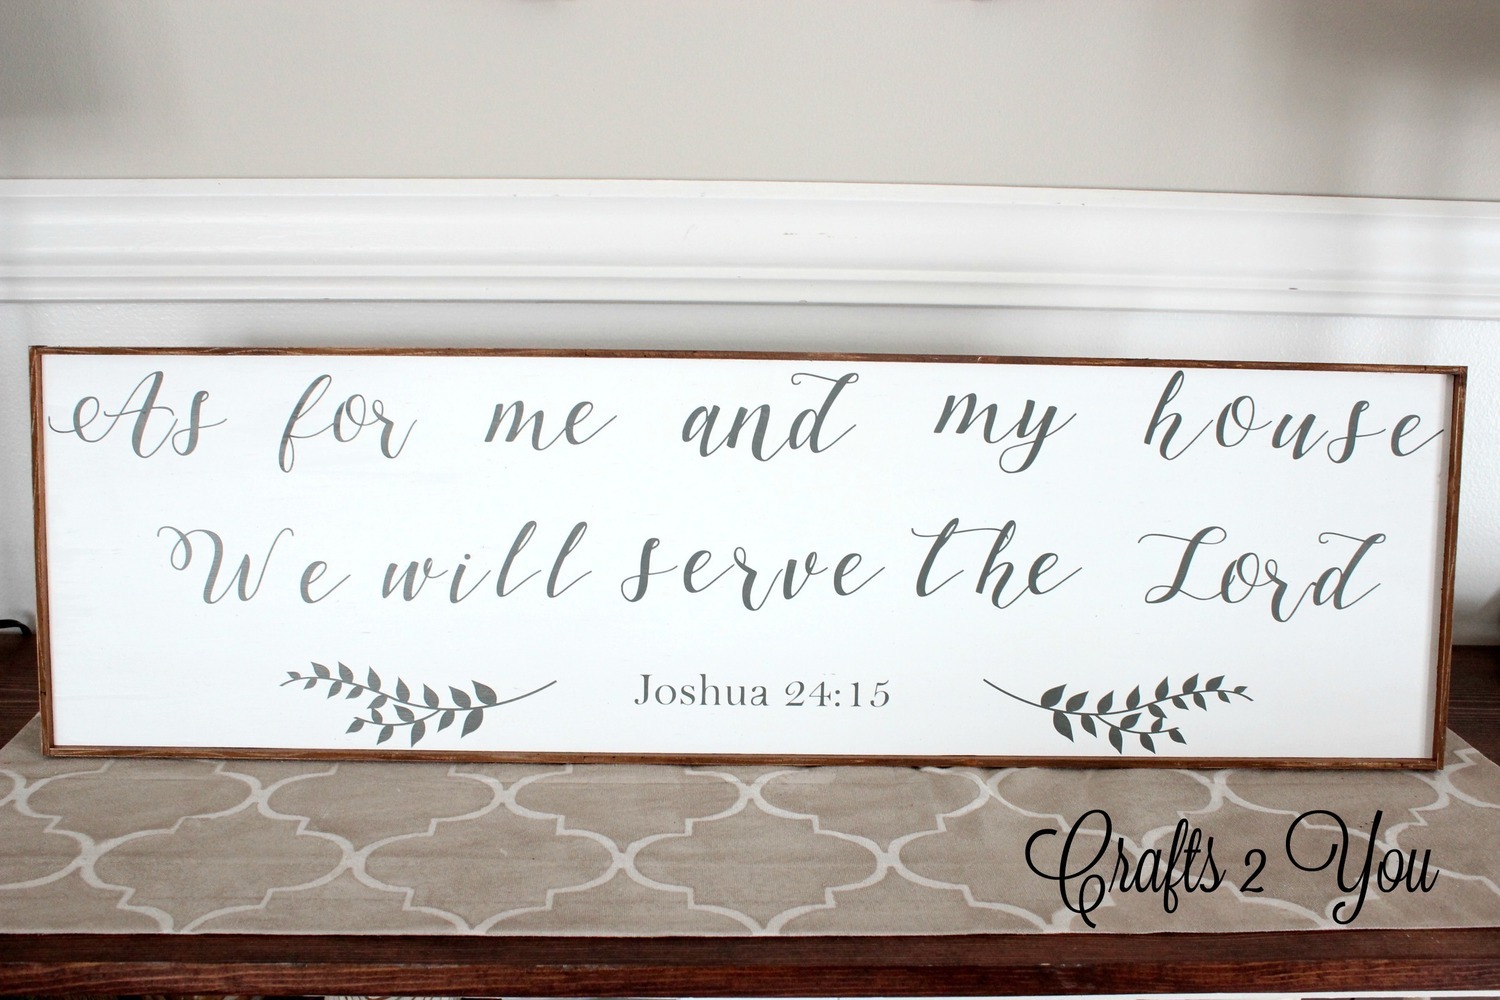 As for me and my house
We will serve the Lord
Joshua 24:15
Crafts 2 You